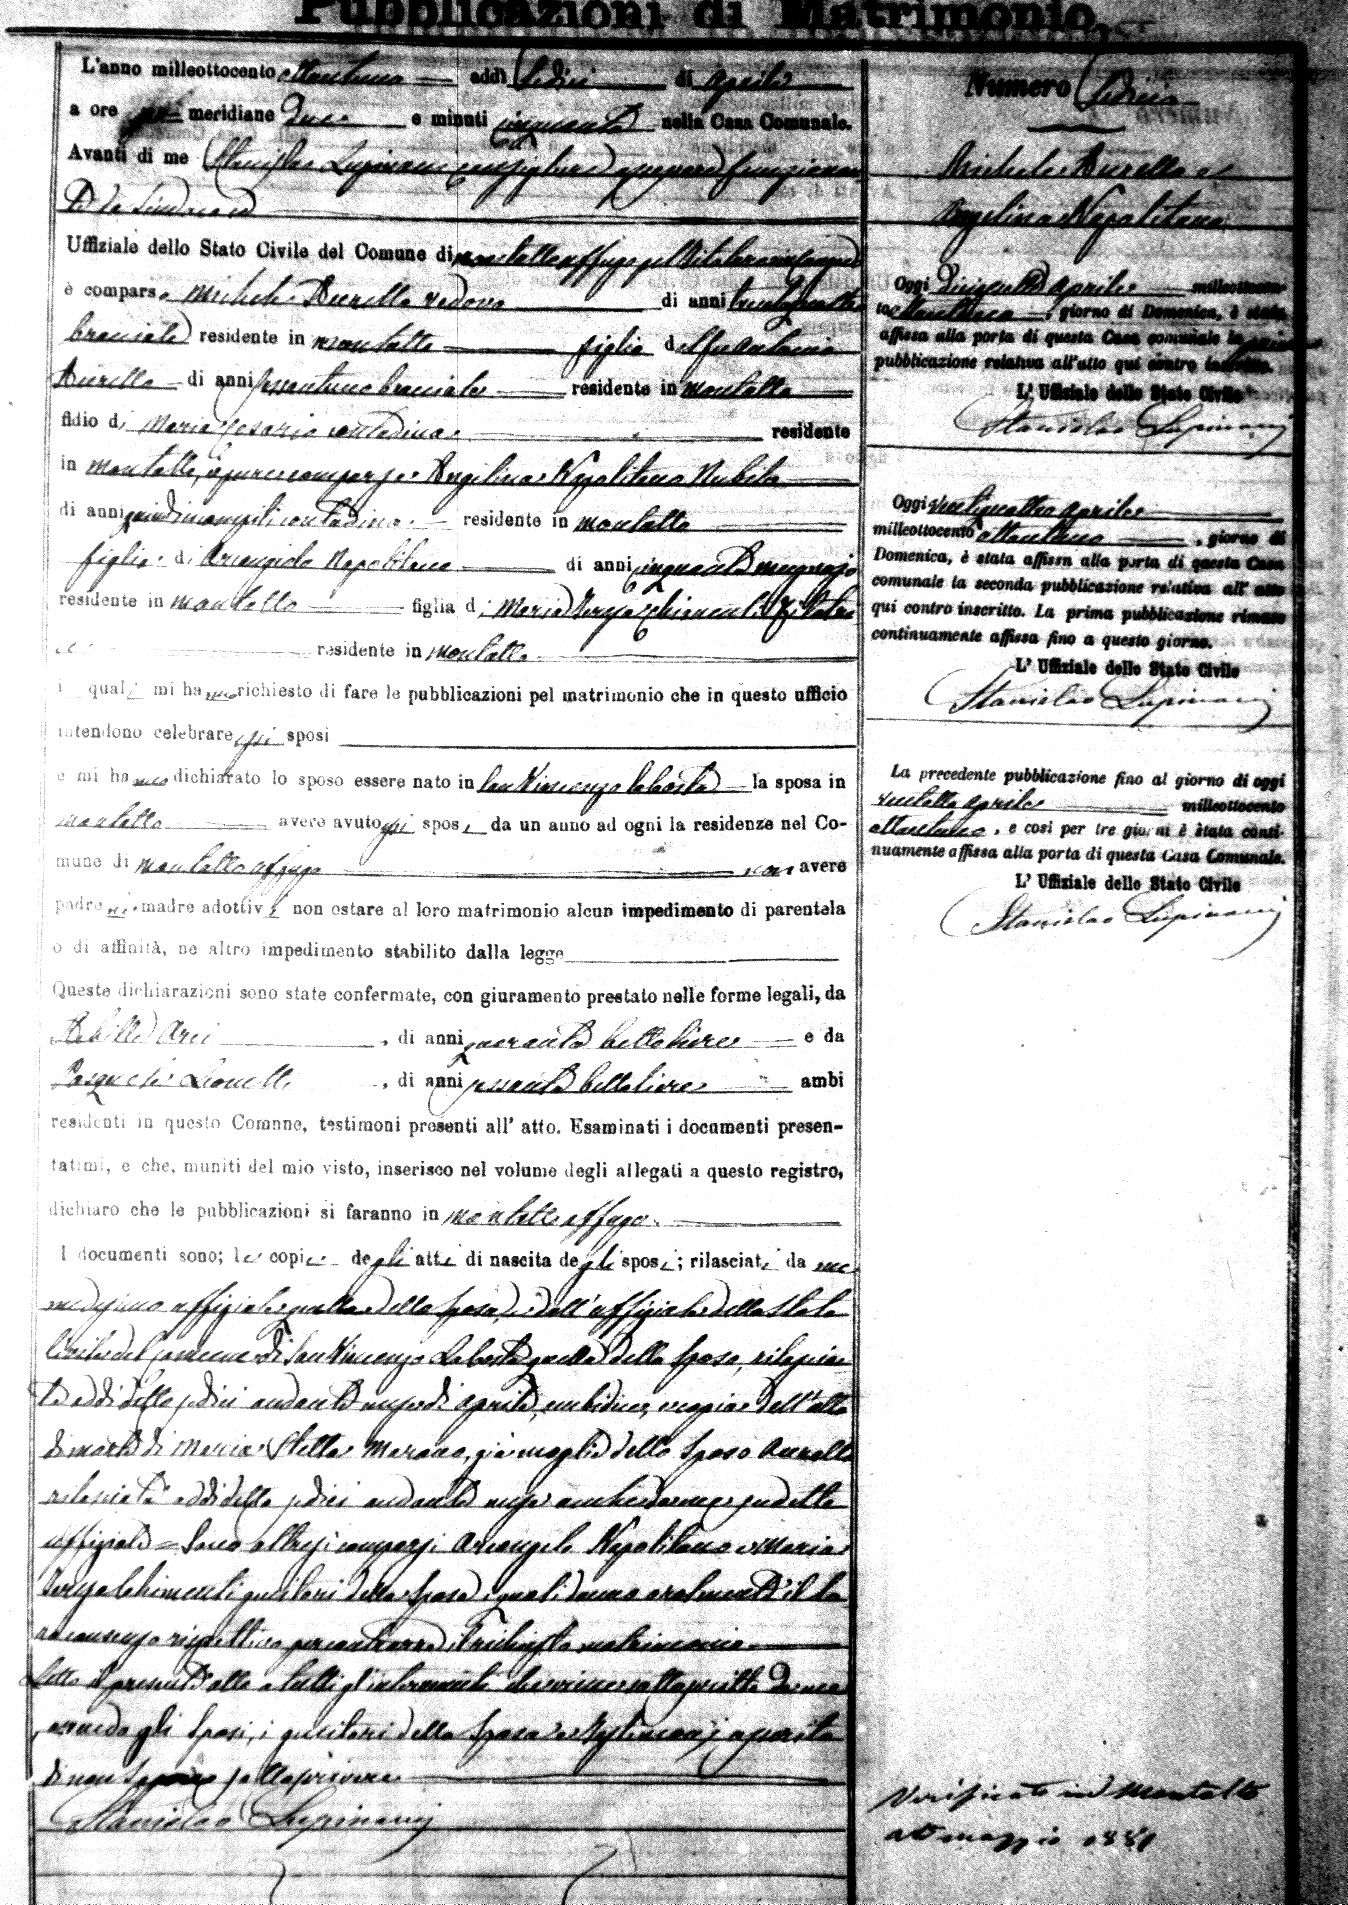 Pubblicazioni di Matrimonio
L'anno milleottocento ottantuno addì sedici di Aprile
a ore meridiane due e minuti cinquanta nella Casa Comunale.
Avanti di me Stanislao Lupinacci consigliere funzionan
te da Sindaco
Uffiziale dello Stato Civile del Comune di Montalto Uffugo
è comparso Michele Aurello vedovo di anni trentaquattro
bracciale residente in Montalto figlio del fu Antonio
Aurello di anni sessantuno bracciale residente in Montalto
figlio di Maria Cesario contadina residente
in Montalto, e pure comparsa Angelina Napolitano Nubile
di anni quindici compiti contadina residente in Montalto
figlia di Arcangiolo Napolitano di anni cinquanta mugnajo
residente in Montalto figlia di Maria Teresa Chimenti filatri
ce residente in Montalto
i quali mi hanno richiesto di fare le pubblicazioni pel matrimonio che in questo ufficio
intendono celebrare essi sposi
e mi hanno dichiarato lo sposo essere nato in San Vincenzo la Costa la sposa in
Montalto avere avuto essi sposi da un anno ad ogni la residenze nel Co-
mune di Montalto Uffugo non avere
padre nè madre adottivi non ostare al loro matrimonio alcun impedimento di parentela
o di affinità, ne altro impedimento stabilito dalla legge
Queste dichiarazioni sono state confermate, con giuramento prestato nelle forme legali, da
Achille Arci, di anni quaranta bettoliere e da
Pasquale Lionetti, di anni sessanta bettoliere ambi
residenti in questo Comune, testimoni presenti all' atto. Esaminati i documenti presen-
tatimi, e che, muniti del mio visto, inserisco nel volume degli allegati a questo registro,
dichiaro che le pubblicazioni si faranno in Montalto Uffugo.
I documenti sono; le copie degli atti di nascita degli sposi; rilasciati da me
medesimo uffiziale quella della sposa, e dall' uffiziale dello Stato
Civile del Comune di San Vincenzo la Costa quella dello sposo, rilascia
te addì dello sedici andante mese di Aprile, ambidue, e copia dell' atto
di morte di Maria Stella Morano, già moglie dello sposo Aurello
rilasciata addì dello sedici andante mese anche da me sudetto
uffiziale = Sono altresì comparsi Arcangelo Napolitano e Maria
Teresa Chimenti genitori della sposa i quali danno oralmente il lo
ro consenso rispettivo per contrarre il richiesto matrimonio.
Letto il presente atto a tutti gl' intervenuti da me
essendo gli sposi, i genitori della sposa e testimonj asserito
di non sapere sottoscrivere
Stanislao Lupinacci
Numero Sedici
Michele Aurello e
Angelina Napolitano
Oggi Diciassette Aprile milleottocen-
to ottantuno, giorno di Domenica, è stata
affissa alla porta di questa Casa comunale la prima
pubblicazione relativa all'atto qui contro inscritto.
L' Uffiziale dello Stato Civile
Stanislao Lupinacci
Oggi ventiquattro Aprile
milleottocento ottantuno, giorno di
Domenica, è stata affissa alla porta di questa Casa
comunale la seconda pubblicazione relativa all' atto
qui contro inscritto. La prima pubblicazione rimase
continuamente affissa fino a questo giorno.
L' Uffiziale dello Stato Civile
Stanislao Lupinacci
La precedente pubblicazione fino al giorno di oggi
ventotto Aprile milleottocento
ottantuno, e così per tre giorni è stata conti-
nuamente affissa alla porta di questa Casa Comunale.
L' Uffiziale dello Stato Civile
Stanislao Lupinacci
Verificato in Montalto
maggio 1881